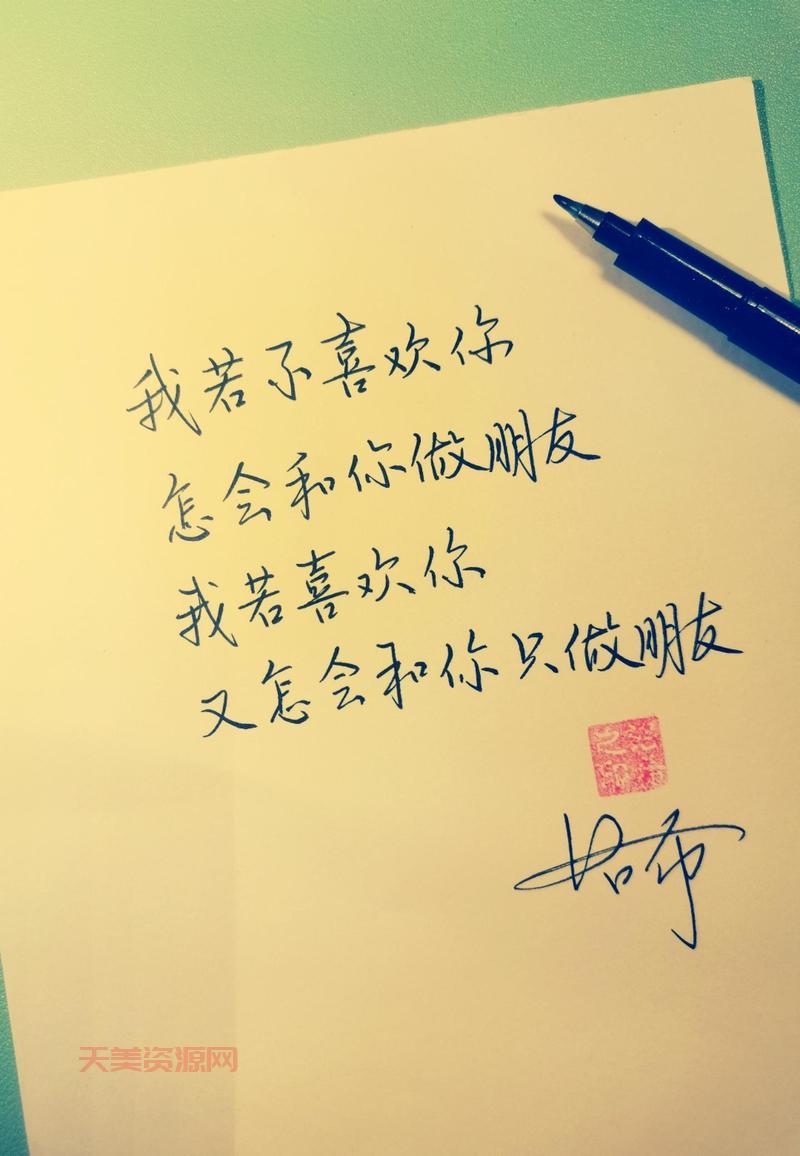 我若不喜欢你
怎会和你做朋友
我若喜欢你
又怎会和你只做朋友
天美资源网